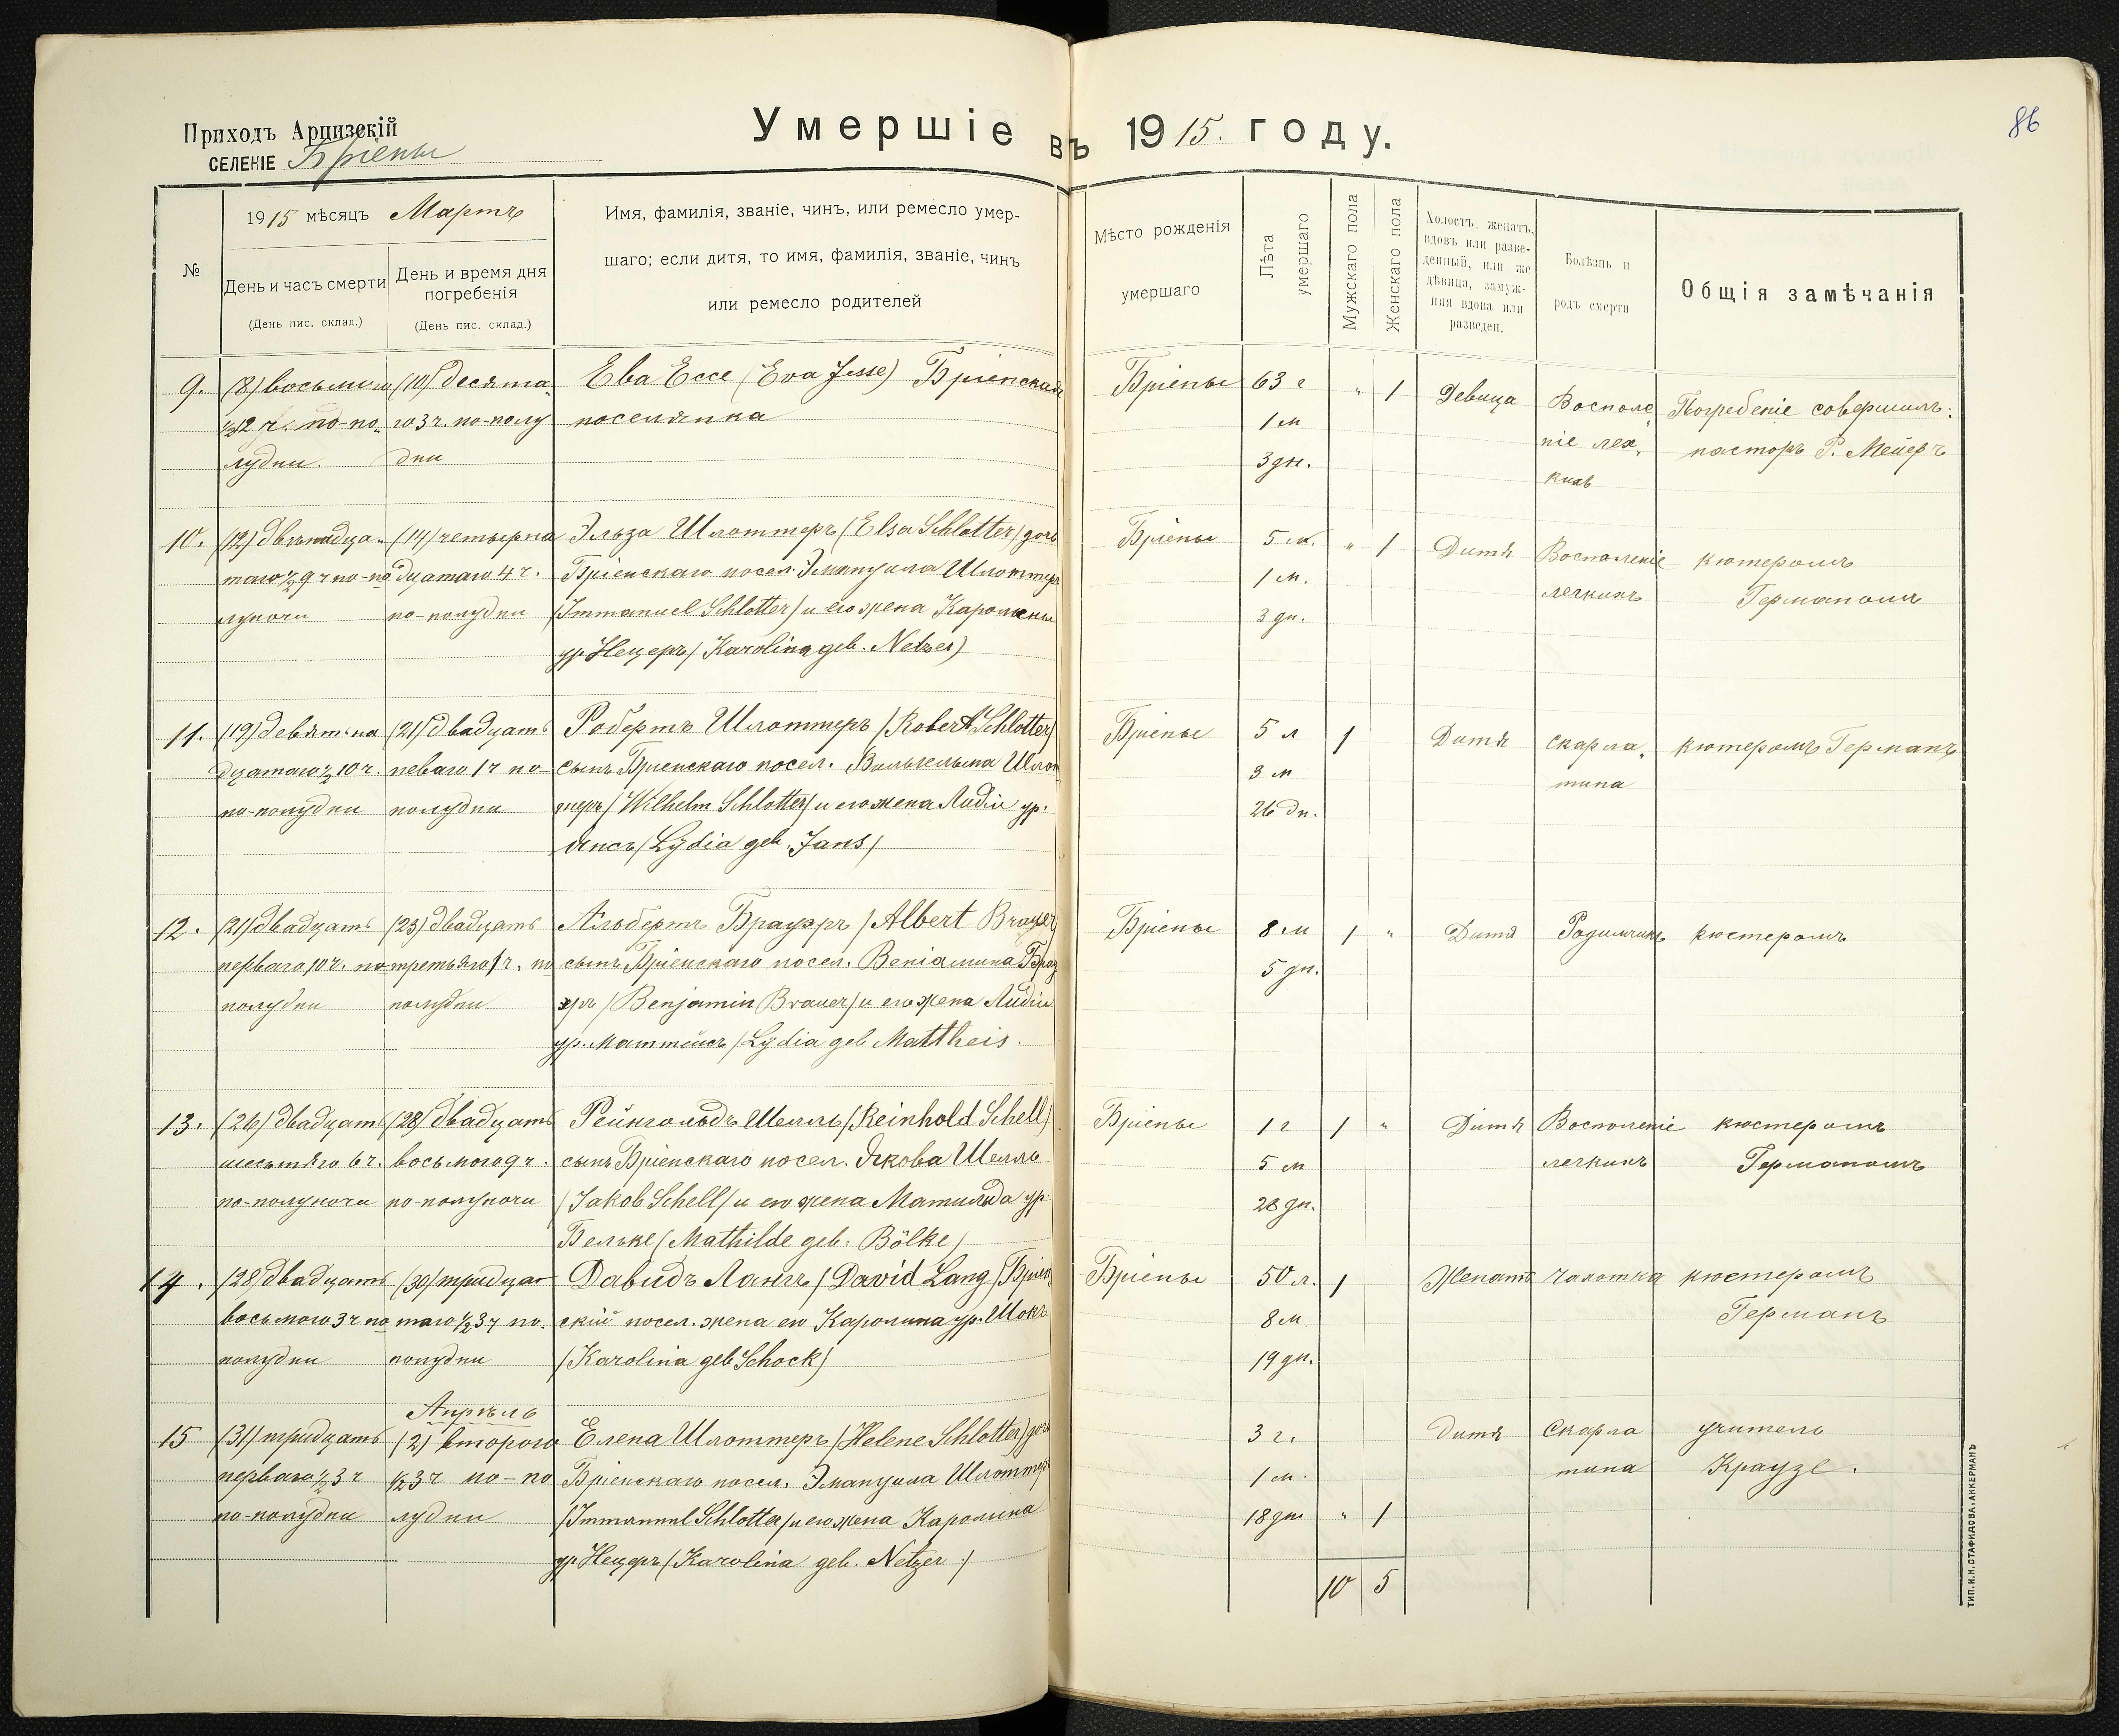 86
Приходъ Арцизскій
СЕЛЕНІЕ Бріены
Умершіе въ 1915. году.
№
1915 мѣсяцъ Мартъ
День и часъ смерти
(День пис. склад.)
День и время дня
погребенія
(День пис. склад.)
Имя, фамилія, званіе, чинъ, или ремесло умер-
шаго; если дитя, то имя, фамилія, званіе, чинъ
или ремесло родителей
Мѣсто рожденія
умершаго
Лѣта
умершаго
Мужскаго пола
Женскаго пола
Холостъ, женатъ,
вдовъ или разве-
денный, или же
дѣвица, замуж-
няя вдова или
разведен.
Болѣзнь и
родъ смерти
Общія замѣчанія
9. (8) восьмого (10) десята„ Ева Ессе (Eva Jesse) Бріенская Бріены 63 г „ 1 Девица Воспале„ Погребеніе совершилъ:
½2 ч. по-по„ го 3 ч. по-полу поселянка 1 м ніе лех„ пасторъ Р. Мейеръ
лудни. дни 3 дн. кихъ
10. (12) двѣнадца„ (14) четырна Эльза Шлоттеръ (Elsa Schlotter) дочь Бріены 5 м. „ 1 Дитя Воспаленіе кютеромъ
таго ½9 ч по-по дцатаго 4 ч. Бріенскаго посел. Эмануила Шлоттеръ 1 м. легкихъ Германомъ
луночи по-полудни (Immanuel Schlotter) и его жена Каролины 3 дн.
ур. Нецеръ (Karolina geb. Netzer)
11. (19) девятна (21) двадцать Робертъ Шлоттеръ (Robert Schlotter) Бріены 5 л 1 Дитя скарла„ кютеромъ Германъ
дцатаго ½10 ч. перваго 1 ч по- сынъ Бріенскаго посел. Вильгельма Шлот 3 м тина
по-полудни полудни теръ (Wilhelm Schlotter) и его жена Лидіи ур. 26 дн.
Янсъ (Lydia geb. Jans)
12. (21) двадцать (23) двадцать Альбертъ Брауэръ (Albert Brauer Бріены 8 м 1 „ Дитя Родимчикъ кюстеромъ
перваго 10 ч. по третьяго 1 ч. по сынъ Бріенскаго посел. Веніамина Брау 5 дн.
полудни полудни эръ (Benjamin Brauer) и его жена Лидіи
ур. Маттейсъ (Lydia geb Mattheis.
13. (26) двадцать (28) двадцать Рейнгольдъ Шелль (Reinhold Schell) Бріены 1 г 1 „ Дитя Воспаленіе кюстеромъ
шестаго 6 ч. восьмого 9 ч. сынъ Бріенскаго посел. Якова Шелль 5 м легкихъ Германомъ
по-полуночи по-полуночи (Jakob Schell) и его жена Матильда ур. 28 дн.
Бельке (Mathilde geb. Bölke)
14. (28) двадцать (30) тридцат Давидъ Лангъ (David Lang) Бріен Бріены 50 л. 1 Женатъ чахотка кюстеромъ
восьмого 3 ч по таго ½3 ч по- скій посел. жена его Каролина ур. Шокъ 8 м. Германъ
полудни полудни (Karolina geb Schock) 19 дн.
Апрѣль
15 (31) тридцать (2) второго Елена Шлоттеръ (Helene Schlotter) дочь 3 г. Дитя Скарла учитель
перваго ½3 ч ½3 ч по-по Бріенскаго посел. Эмануила Шлоттеръ 1 м. тина Краузе.
по-полудни лудни (Immanuel Schlotter) и его жена Каролина 18 дн „ 1
ур. Нецеръ (Karolina geb. Netzer)
10 5
ТИП. И. Н. СТАФИДОВА, АККЕРМАНЪ